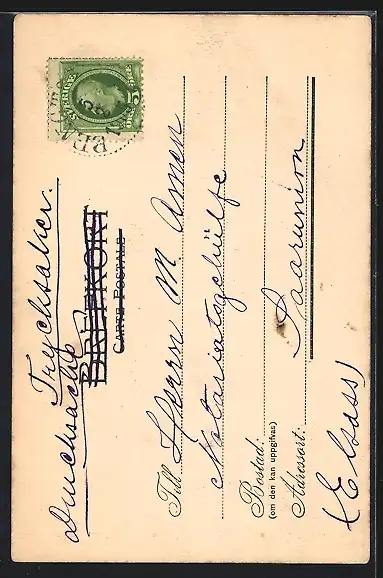 SVERIGE
5 ÖRE 5
Trycksaker.
Drucksache
BREFKORT
CARTE POSTALE
Till Herrn M. Amen
Notariatsgehülfe
Bostad:
(om den kan uppgifvas)
Adressort: Saarunion
(Elsass)